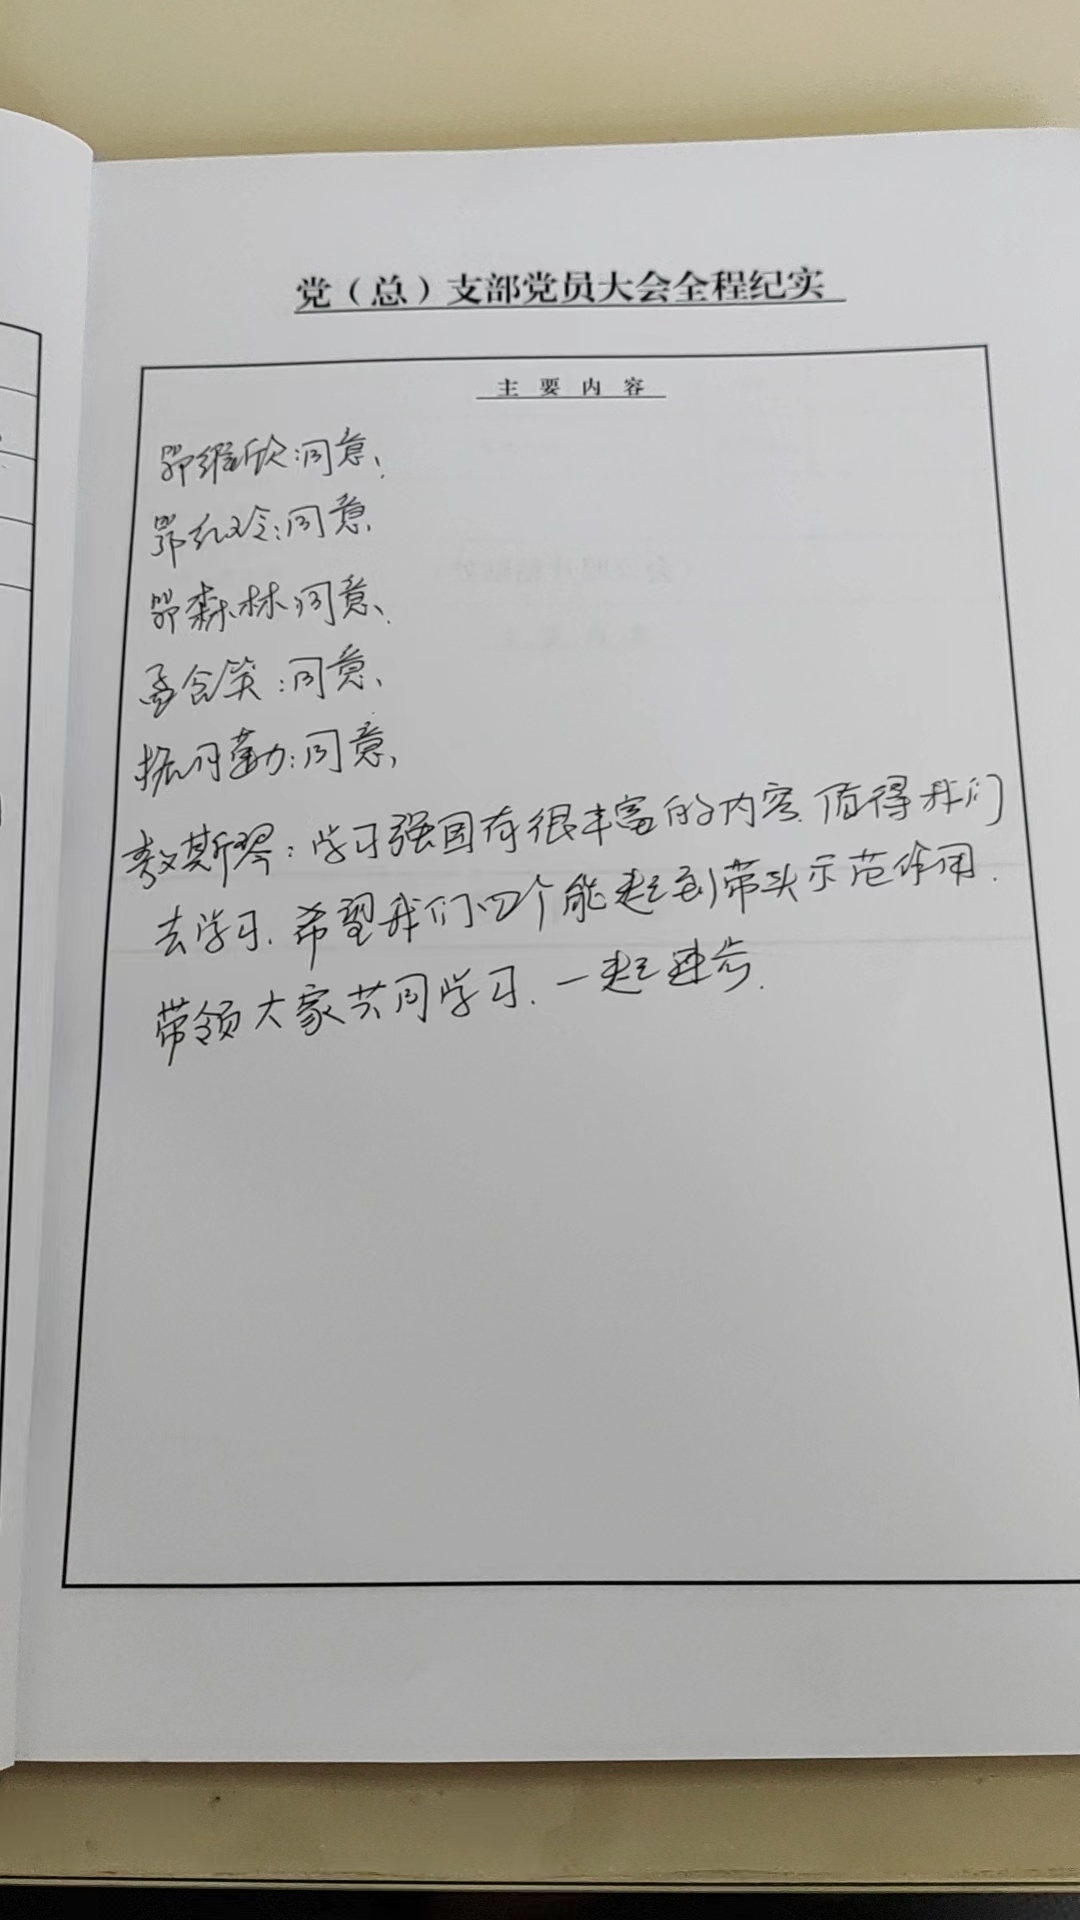 党（总）支部党员大会全程纪实
主要内容
鄂缊欣:同意、
鄂红玲:同意、
鄂森林:同意、
孟含笑:同意、
同意、
敖斯琴：学习强国有很丰富的内容、值得我们
去学习、希望我们四个能起到带头示范作用.
带领大家共同学习、一起进步.